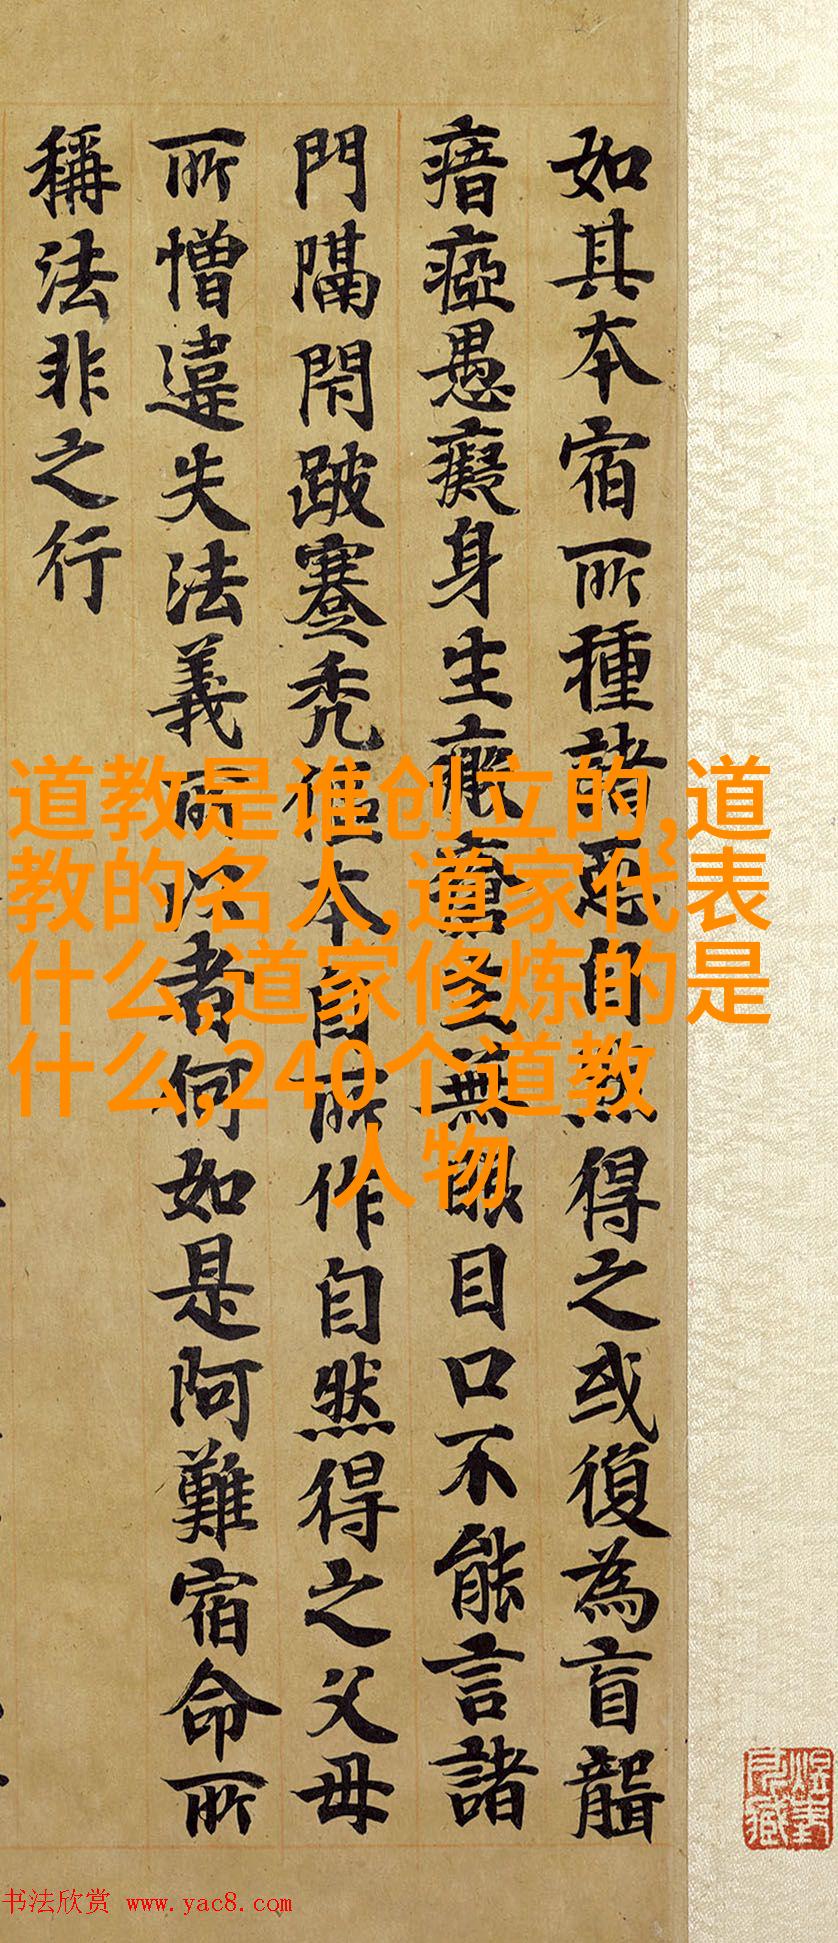 如其本宿所種諸惡自然得之或復為盲聾
瘖瘂愚癡身生瘢瘡無眼目口不能言諸
門隔閇跛蹇禿傴本自所作自然得之父母
所憎違失法義所以者何如是阿難宿命所
稱法非之行
道教是谁创立的,道
教的名人,道家代表
什么,道家修炼的是
什么,240个道教
人物
书法欣赏 www.yac8.com